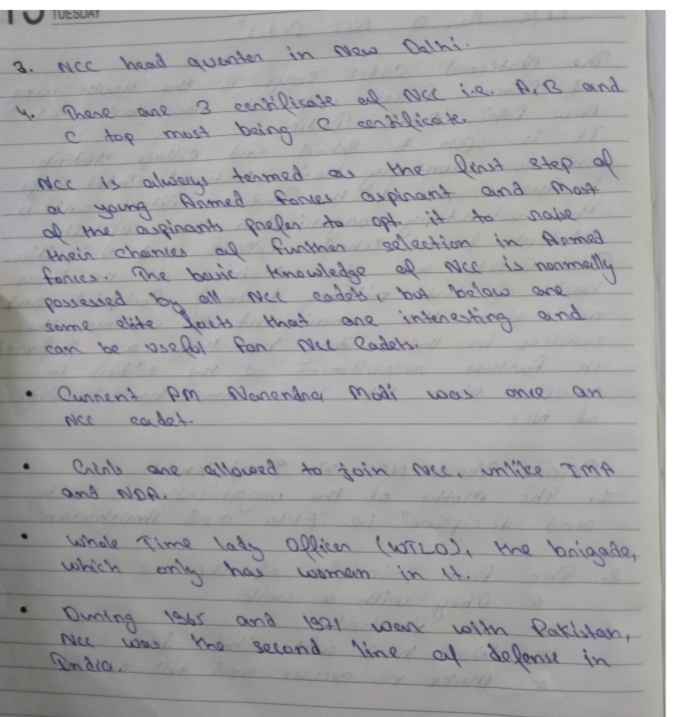 TUESDAY
3. NCC head quarter in New Delhi.
4. There are 3 certificate of NCC i.e. A, B and
C top most being C certificate.
NCC is always termed as the first step of
a young Armed forces aspirant and most
of the aspirants prefer to opt it to raise
their chances of further selection in Armed
forces. The basic knowledge of NCC is normally
possessed by all NCC cadets, but below are
some elite facts that are interesting and
can be useful for NCC Cadets.
• Current PM Narendra Modi was once an
NCC cadet.
• Girls are allowed to join NCC, unlike IMA
and NDA.
• Whole Time lady Officer (WTLO), the brigade,
which only has woman in it.
• During 1965 and 1971 war with Pakistan,
NCC was the second line of defense in
India.